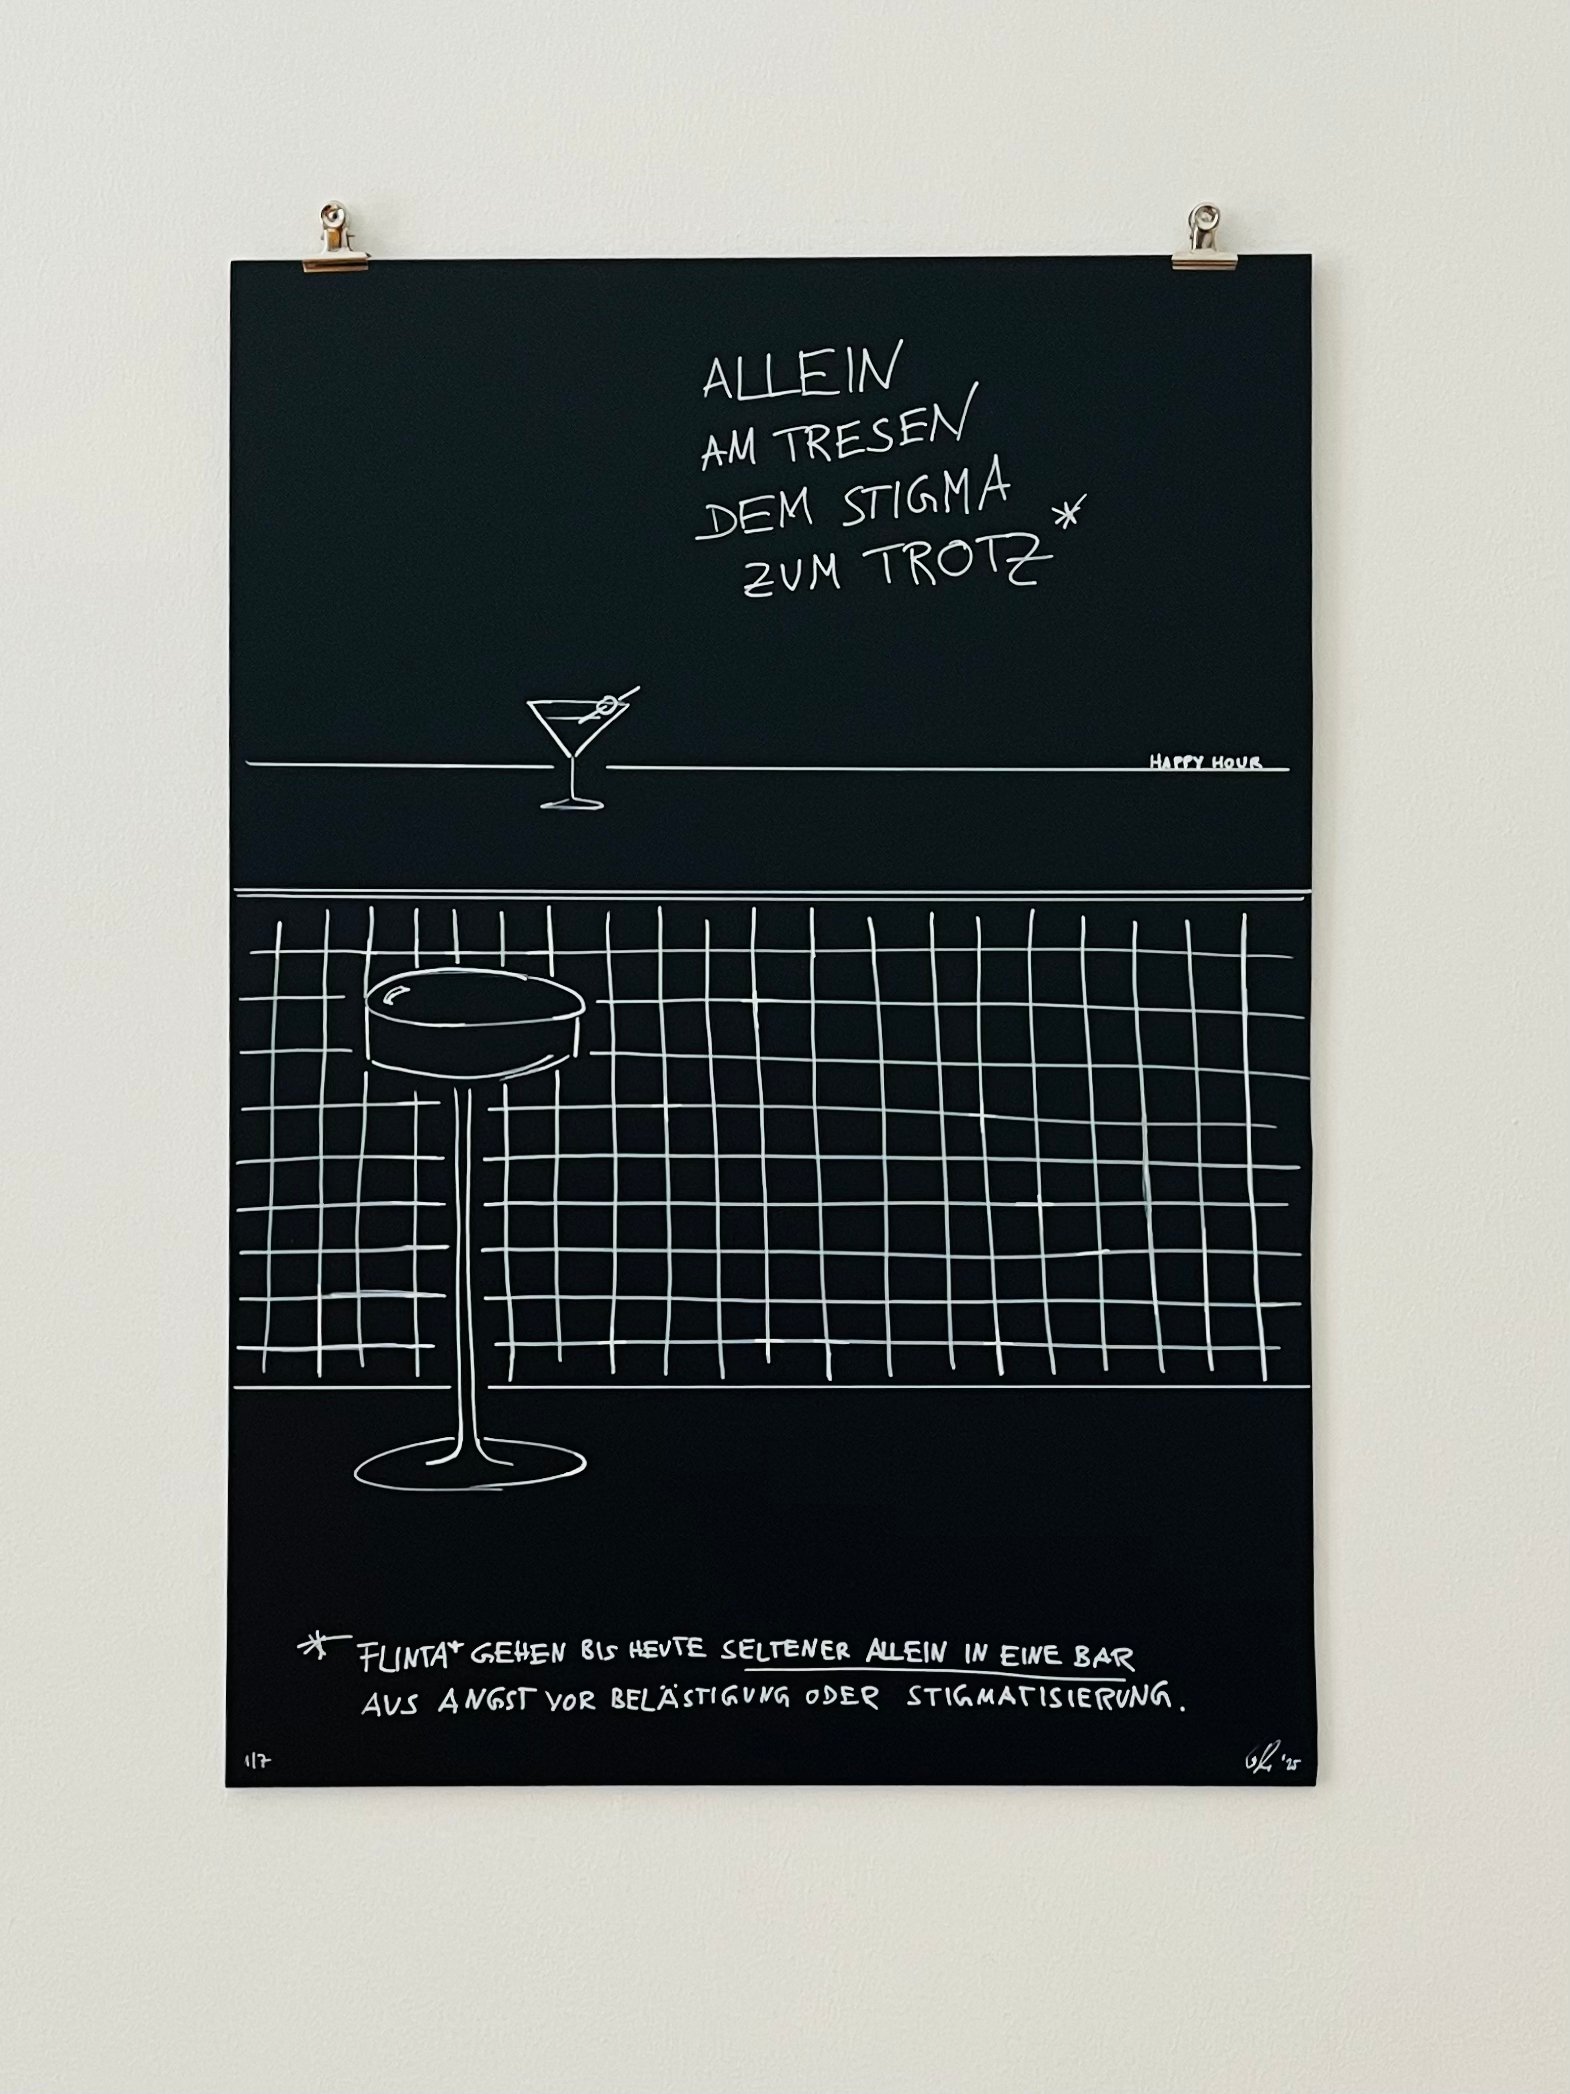 ALLEIN
AM TRESEN
DEM STIGMA
ZUM TROTZ*
HAPPY HOUR
* FLINTA* GEHEN BIS HEUTE SELTENER ALLEIN IN EINE BAR
AUS ANGST VOR BELÄSTIGUNG ODER STIGMATISIERUNG.
1/7
'25